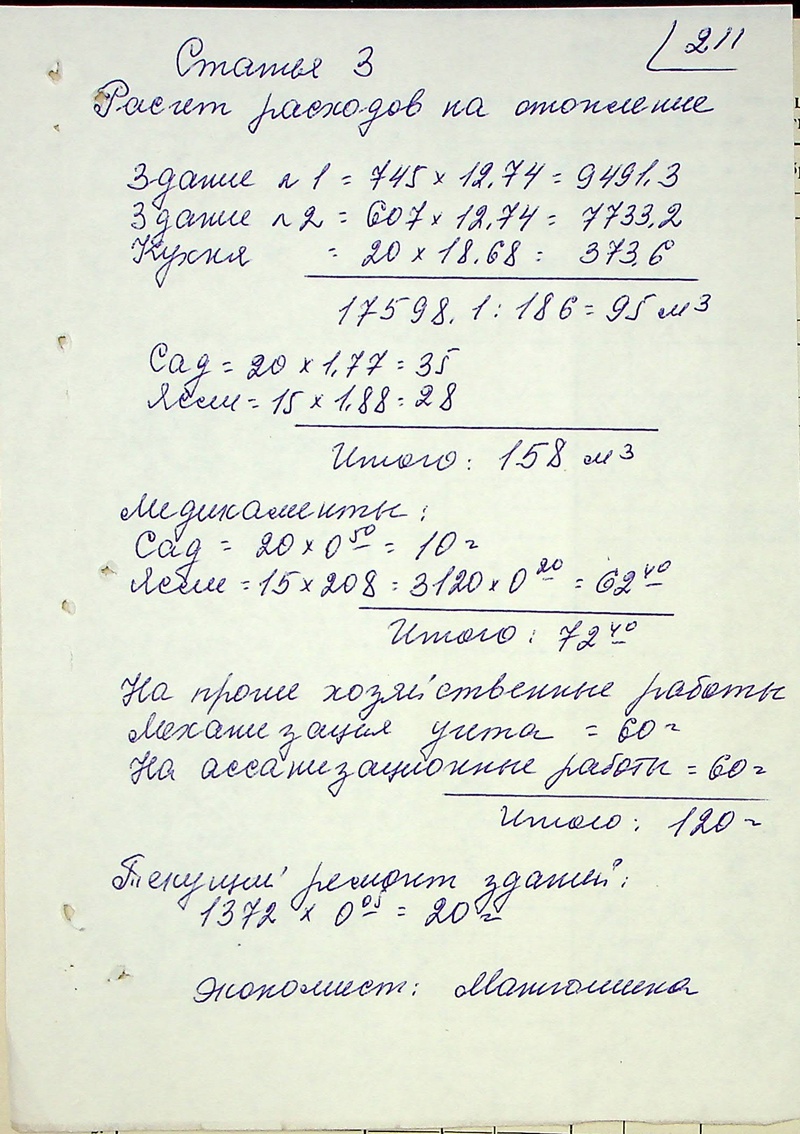 211
Статья 3
Расчет расходов на отопление
Здание №1 = 745 × 12.74 = 9491.3
Здание №2 = 607 × 12.74 = 7733.2
Кухня = 20 × 18.68 = 373.6
17598.1 : 186 = 95 м3
Сад = 20 × 1,77 = 35
Ясли = 15 × 1.88 = 28
Итого: 158 м3
Медикаменты:
Сад = 20 × 0 50 = 10=
Ясли = 15 × 208 = 3120 × 0 20 = 62 40
Итого: 72 40
На проче хозяйственные работы
Механизация учета = 60=
На ассанизационные работы = 60=
Итого: 120=
Текущий ремонт зданий:
1372 × 0 05 = 20=
Экономист: